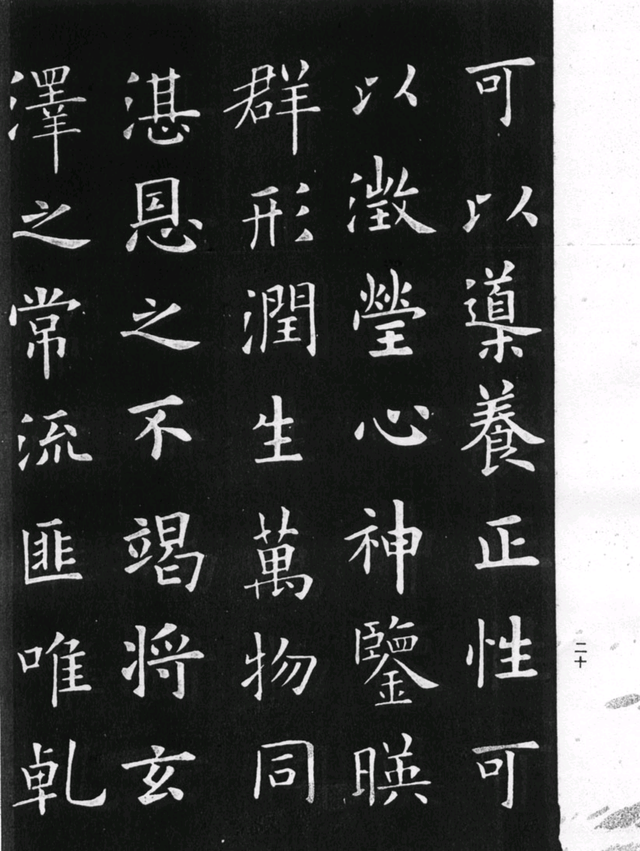 可以𨗉養正性可
以澂瑩心神鑒暎
群形潤生萬物同
湛恩之不竭將玄
澤之常流匪唯乹
二十